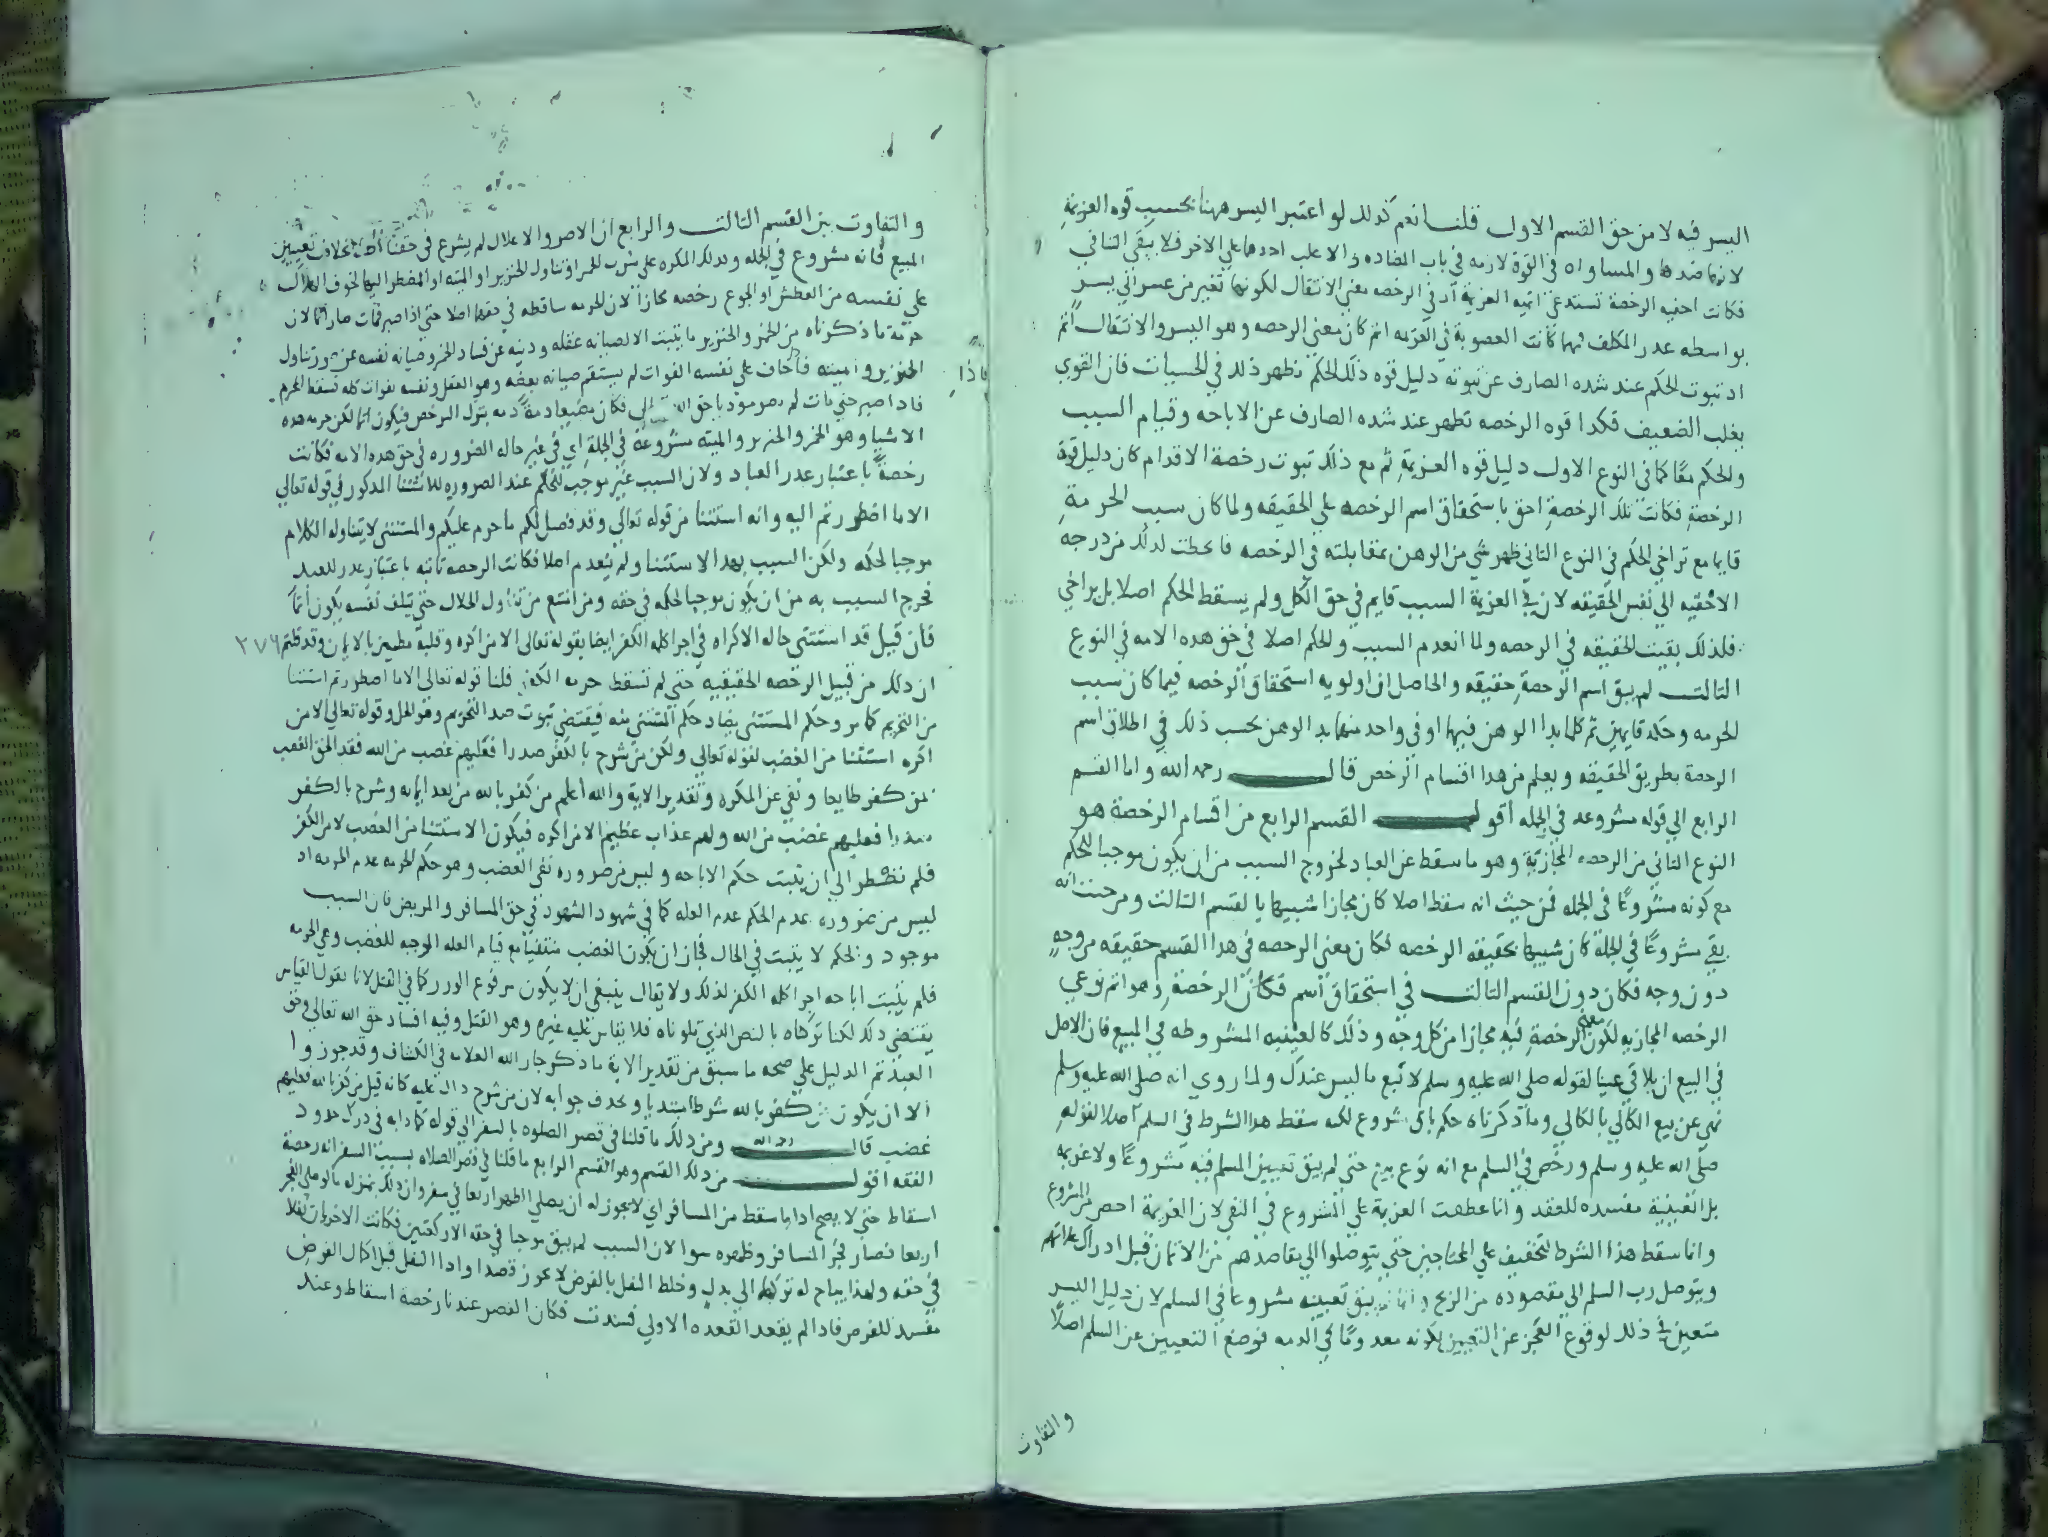 اليسر فيه لا من حق القسم الاول قلنا نعم كذلك لو اعتبر اليسر ههنا بحسب قوه العزيمة
لانها ضدها والمساواه في القوة لازمه في باب المضاده والا غلب احدهما علي الاخر فلا يبقى التنافي
فكانت احقيه الرخصة تستدعي اتميه العزيمة اذ في الرخصه معني الانتقال لكونها تغير من عسر الي يسر
بواسطه عذر المكلف فمهما كانت الصعوبة في العزيمه اتم كان معنى الرخصه وهو اليسر والانتقال اتم
اذ ثبوت الحكم عند شده الصارف عن ثبوته دليل قوه ذلك الحكم نظهر ذلك في الحسيات فان القوي
يغلب الضعيف فكذا قوه الرخصه تظهر عند شده الصارف عن الاباحه وقيام السبب
والحكم معًا كما في النوع الاول دليل قوه العزيمة ثم مع ذلك ثبوت رخصة الاقدام كان دليل قوة
الرخصة فكانت تلك الرخصة احق باستحقاق اسم الرخصه علي الحقيقه ولما كان سبب الحرمة
قايما مع تراخي الحكم في النوع الثاني ظهر شي من الوهن بمقابلته في الرخصه فانحطت لذلك من درجه
الاحقيه الي نفس الحقيقه لان في العزيمة السبب قايم في حق الكل ولم يسقط الحكم اصلا بل يراخي
فلذلك بقيت الحقيقه في الرخصه ولما انعدم السبب والحكم اصلا في حق هذه الامه في النوع
الثالث لم يبق اسم الرخصة حقيقه والحاصل ان اولويه استحقاق الرخصه فيما كان سبب
الحرمه وحكمه قايمين ثم كلما بدا الوهن فيهما او في واحد منهما بدا الوهن بحسب ذلك في اطلاق اسم
الرخصة بطريق الحقيقه ويعلم من هذا اقسام الرخص قال رحمه الله واما القسم
الرابع الي قوله مشروعه في الجمله أقول القسم الرابع من اقسام الرخصة هو
النوع الثاني من الرخصه المجازية وهو ما سقط عن العباد لخروج السبب من ان يكون موجبا للحكم
مع كونه مشروعًا في الجمله فمن حيث انه سقط اصلا كان مجازا شبيها بالقسم الثالث ومن حيث انه
بقي مشروعًا في الجملة كان شبيها بحقيقه الرخصه فكان معنى الرخصه في هذا القسم حقيقه من وجهٍ
دون وجه فكان دون القسم الثالث في استحقاق اسم الرخصة وهو اتم نوعي
الرخصه المجازيه لكون معنى الرخصة فيه مجازا من كل وجه وذلك كالعينيه المشروطه في المبيع فان الاصل
في البيع ان يلاقي عينا لقوله صلى الله عليه وسلم لا تبع ما ليس عندك ولما روي انه صلى الله عليه وسلم
نهي عن بيع الكالي بالكالي وما ذكرناه حكم باق مشروع لكنه سقط هذا الشرط في السلم اصلا لقوله
صلى الله عليه وسلم ورخص في السلم مع انه نوع بيع حتى لم يبق تعيين المسلم فيه مشروعًا ولا عزيمه
بل العينية مفسده للعقد وانما عطفت العزيمة علي المشروع في النفي لان العزيمة اخص من المشروع
وانما سقط هذا الشرط للتخفيف علي المحتاجين حتى يتوصلوا الي مقاصدهم من الاثمان قبل ادراك غلاتهم
ويتوصل رب السلم الي مقصوده من الربح يبق تعيينه مشروعا في السلم لان دليل اليسر
متعين في ذلك لوقوع العجز عن التعيين لكونه معدومًا في الذمه فوضع التعيين عن السلم اصلًا
والتفاوت
والتفاوت بين القسم الثالث والرابع ان الاصر والاغلال لم يشرع في حقنا اصلا بخلاف تعيين
المبيع فانه مشروع في الجمله وكذلك المكره علي شرب الخمر او تناول الخنزير او الميته او المضطر اليها لخوف الهلاك
علي نفسه من العطش او الجوع رخصه مجازا لان الحرمه ساقطه في حقهما اصلا حتى اذا صبر فمات صار اثما لان
حرمة ما ذكرناه من الخمر والخنزير ما يثبت الا لصيانه عقله ودينه عن فساد الخمر وصيانه نفسه عن تناول
الخنزير والميته فاذا خاف علي نفسه الفوات لم يستقم صيانه بعضه وهو العقل ونفسه بفوات كله فسقط المحرم
فاذا
فاذا صبر حتى مات لم يصر موديا حق الله تعالى فكان مضيعا دمه بترك الرخص فيكون اثما لكن حرمه هذه
الاشيا وهو الخمر والخنزير والميته مشروعة في الجملة اي في غير حاله الضروره في حق هذه الامه فكانت
رخصةً باعتبار عذر العباد ولان السبب غير موجب للحكم عند الضروره للاستثنا المذكور في قوله تعالى
الا ما اضطررتم اليه وانه استثنا من قوله تعالى وقد فصل لكم ما حرم عليكم والمستثنى لا يتناوله الكلام
موجبا لحكمه ولكن السبب بهذا الاستثنا ولم ينعدم اصلا فكانت الرخصه ثابته باعتبار عذر للعبد
فخرج السبب به من ان يكون موجبا لحكمه في حقه ومن امتنع من تناول الحلال حتى يتلف نفسه يكون آثمًا
فان قيل قد استثنى حاله الاكراه في اجرا كلمه الكفر ايضا بقوله تعالى الا من اكره وقلبه مطمين بالايمان وقد قلتم
٢٧٦
ان ذلك من قبيل الرخصه الحقيقيه حتى لم تسقط حرمه الكفر قلنا قوله تعالى الا ما اضطررتم استثنا
من التحريم كما مر وحكم المستثنى يضاد حكم المستثنى منه فيقتضي ثبوت ضد التحريم وهو الحل وقوله تعالى الا من
اكره استثنا من الغضب لقوله تعالى ولكن من شرح بالكفر صدرا فعليهم غضب من الله فقد الحق الغضب
بمن كفر طايعا ونفي عن المكره وتقدير الاية والله اعلم من كفر بالله من بعد ايمانه وشرح بالكفر
صدرا فعليهم غضب من الله ولهم عذاب عظيم الا من اكره فيكون الاستثنا من الغضب لا من الكفر
فلم نضطر الي ان يثبت حكم الاباحه وليس من ضروره نفي الغضب وهو حكم الحرمه عدم الحرمه اذ
ليس من ضروره عدم الحكم عدم العله كما في شهود الشهود في حق المسافر والمريض فان السبب
موجود والحكم لا يثبت في الحال فجاز ان يكون الغضب منتفيا مع قيام العله الموجبه للغضب وهي الحرمه
فلم يثبت اباحه اجرا كلمه الكفر لذلك ولا يقال ينبغي ان لا يكون مرفوع الوزر كما في القتل لانا نقول القياس
يقتضي ذلك لكنا تركناه بالنص الذي تلوناه فلا يقاس عليه غيره وهو القتل وفيه افساد حق الله تعالى وحق
العبد ثم الدليل علي صحه ما سبق من تقدير الاية ما ذكر جار الله العلامه في الكشاف وقد جوزوا
الا ان يكون من كفر بالله شرطا مبتدا ويحذف جوابه لان من شرح دال عليه كانه قيل من كفر بالله فعليهم
غضب قال رحمه الله ومن ذلك ما قلنا في قصر الصلوه بالسفر الي قوله كما دابه في درك حدود
الفقه اقول من ذلك القسم وهو القسم الرابع ما قلنا في قصر الصلاه بسبب السفر انه رخصة
اسقاط حتى لا يصح ادا ما سقط من المسافر اي لا يجوز له ان يصلي الظهر اربعا في سفره وان ذلك بمنزله ما لو صلى الفجر
اربعا فصار فجر المسافر وظهره سوا لان السبب لم يبق موجبا في حقه الا ركعتين فكانت الاخريان نفلا
في حقه ولهذا يباح له تركها لا الي بدل وخلط النفل بالفرض لا يجوز قصدا واذا النفل قبل اكمال الفرض
مفسد للفرض فاذا لم يقعد القعده الاولي فسدت فكان القصر عندنا رخصة اسقاط وعند